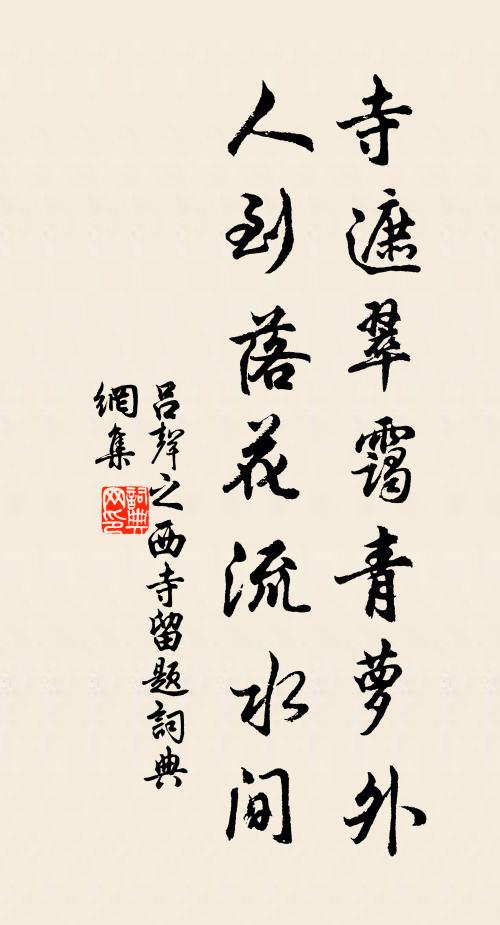 寺遮翠靄青萝外
人到落花流水间
吕聲之西寺留题詞典
網集
詞典
网印